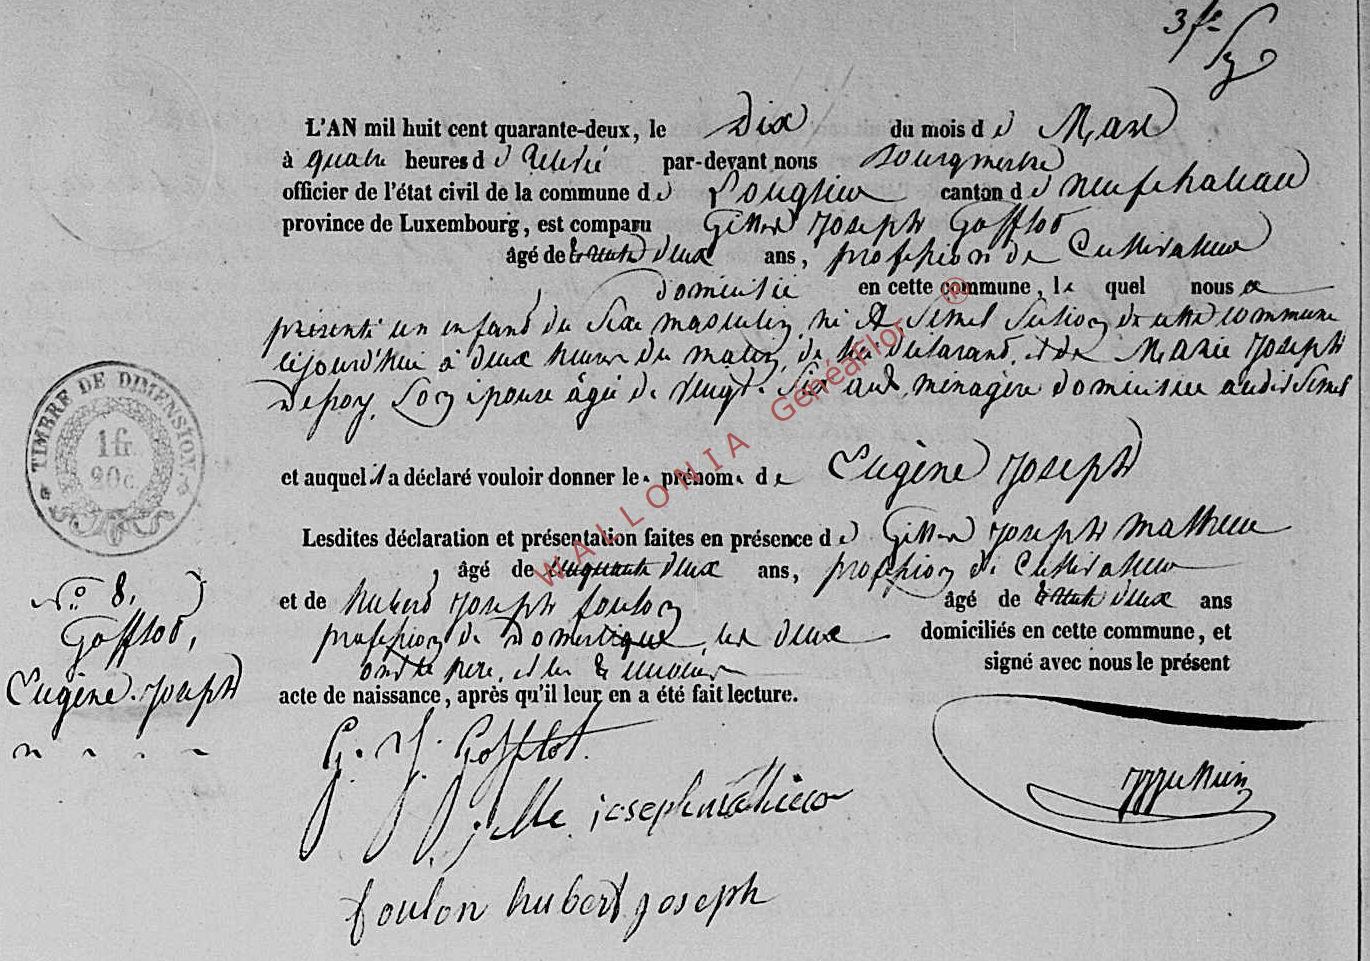 3 fe
L'AN mil huit cent quarante-deux, le Dix du mois de Mars
à quatre heures de Relevé par-devant nous Bourgmestre
officier de l'état civil de la commune de Longlier canton de neufchateau
province de Luxembourg, est comparu Gilles Joseph Gofflot
âgé de trente deux ans, profession de Cultivateur
domicilié en cette commune, le quel nous a
présenté un enfant du Sexe masculin, né à Semel Section de cette commune
cejourd'hui à deux heures du matin, de lui déclarant, et de Marie Joseph
Defoy, Son épouse âgée de vingt-Six ans, ménagère domiciliée audit Semel
et auquel il a déclaré vouloir donner le prénom de Eugène Joseph
Lesdites déclaration et présentation faites en présence de Gilles Joseph Mathieu
âgé de cinquante deux ans, profession de Cultivateur
et de hubert Joseph foulon âgé de trente deux ans
profession de Domestique, les deux domiciliés en cette commune, et
ont le père, et les témoins signé avec nous le présent
acte de naissance, après qu'il leur en a été fait lecture.
TIMBRE DE DIMENSION.
1 fr
20 c.
No. 8.
Gofflot,
Eugène-Joseph
G. J. Gofflot.
gille joseph mathieu
foulon hubert joseph
WALLONIA GénéaFlor ®